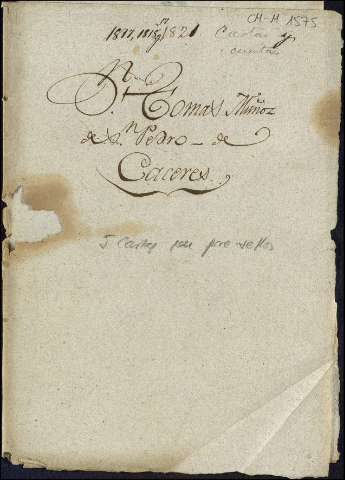 CH-M 1575
1817, 1818, y 1821 Cartas y
cuentas
Dn Tomas Muñoz
de Sn Pedro - de
Caceres.
5 Cartas pre